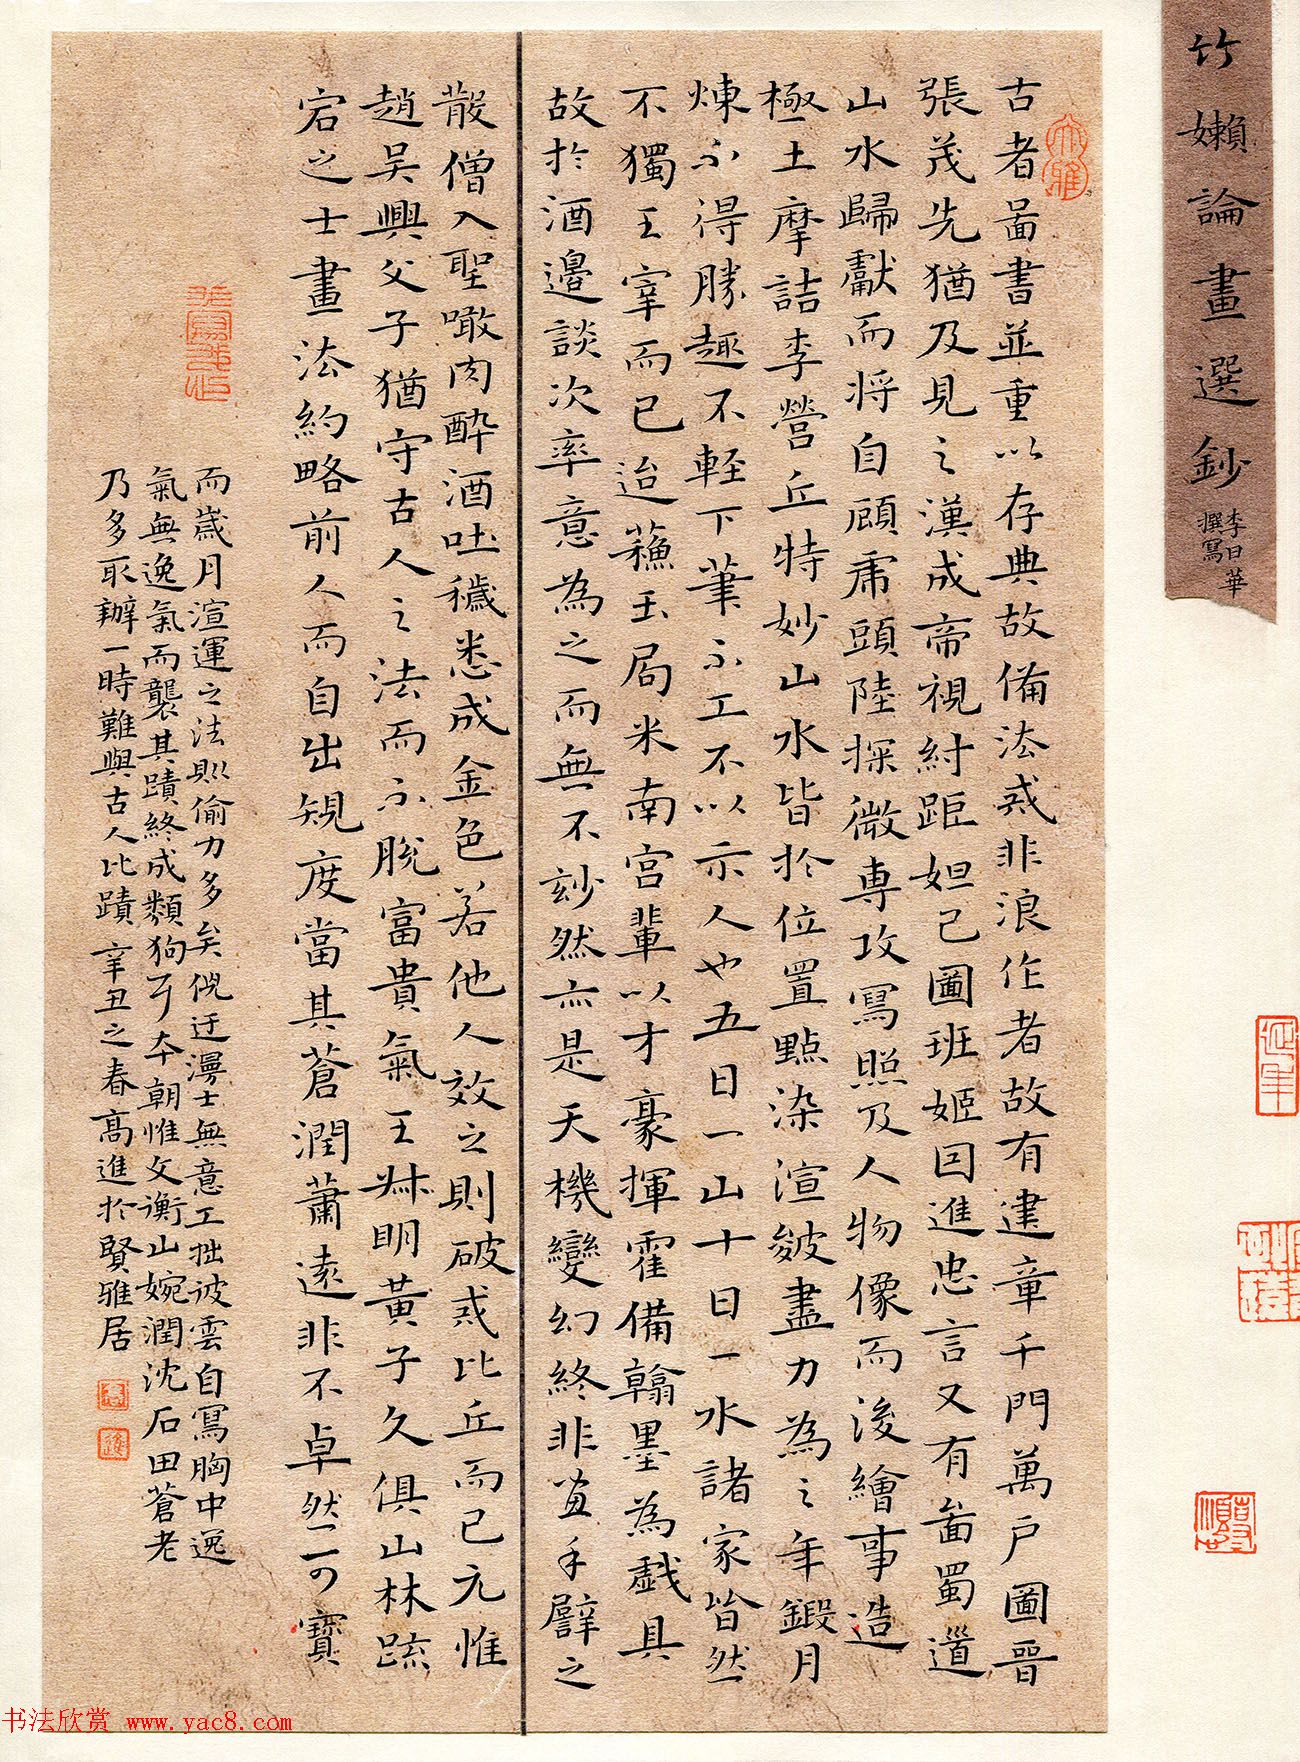 竹嬾論畫選鈔
李日華
撰寫
大雅
古者啚書並重以存典故備法戒非浪作者故有建章千門萬戶圖晉
張茂先猶及見之漢成帝視紂距妲己圖班姬因進忠言又有啚蜀道
山水歸獻而將自顧虎頭陸探微専攻寫照及人物像而後繪事造
極王摩詰李營丘特妙山水皆於位置點染渲皴盡力為之年鍛月
煉不得勝趣不輕下筆不工不以示人也五日一山十日一水諸家皆然
不獨王宰而已迨蘓玉局米南宮輩以才豪揮霍備翰墨為戲具
故於酒邊談次率意為之而無不玅然亦是天機變幻終非畫手譬之
散僧入聖噉肉醉酒吐穢悉成金色若他人效之則破戒比丘而已元惟
趙吳興父子猶守古人之法而不脫富貴氣王叔明黃子久俱山林踈
宕之士畫法約略前人而自出規度當其蒼潤蕭遠非不卓然可寶
而歲月渲運之法則偷力多矣倪迂漫士無意工拙彼雲自寫胸中逸
氣無逸氣而襲其蹟終成類狗耳本朝惟文衡山婉潤沈石田蒼老
乃多取辦一時難與古人比蹟辛丑之春高進於賢雅居
延年
書法欣赏 www.yac8.com